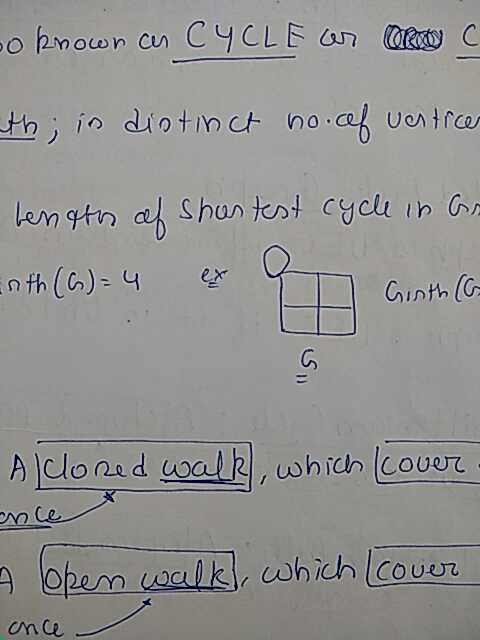 so known as CYCLE or C
th; is distinct no. of vertices
length of shortest cycle in Gr
irth (G) = 4 ex Girth (G
G
A closed walk, which cover
once
A open walk, which cover
once